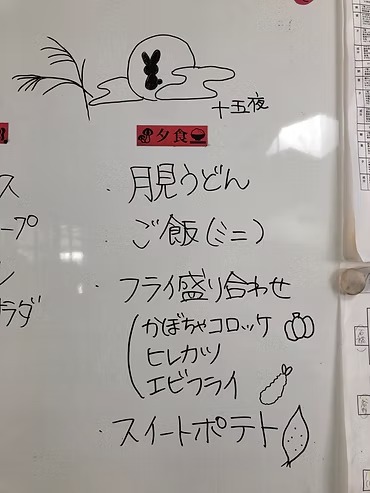 十五夜
夕食
・月見うどん
・ご飯(ミニ)
・フライ盛り合わせ
(かぼちゃコロッケ
ヒレカツ
エビフライ
・スイートポテト
ス
ープ
ン
ラダ